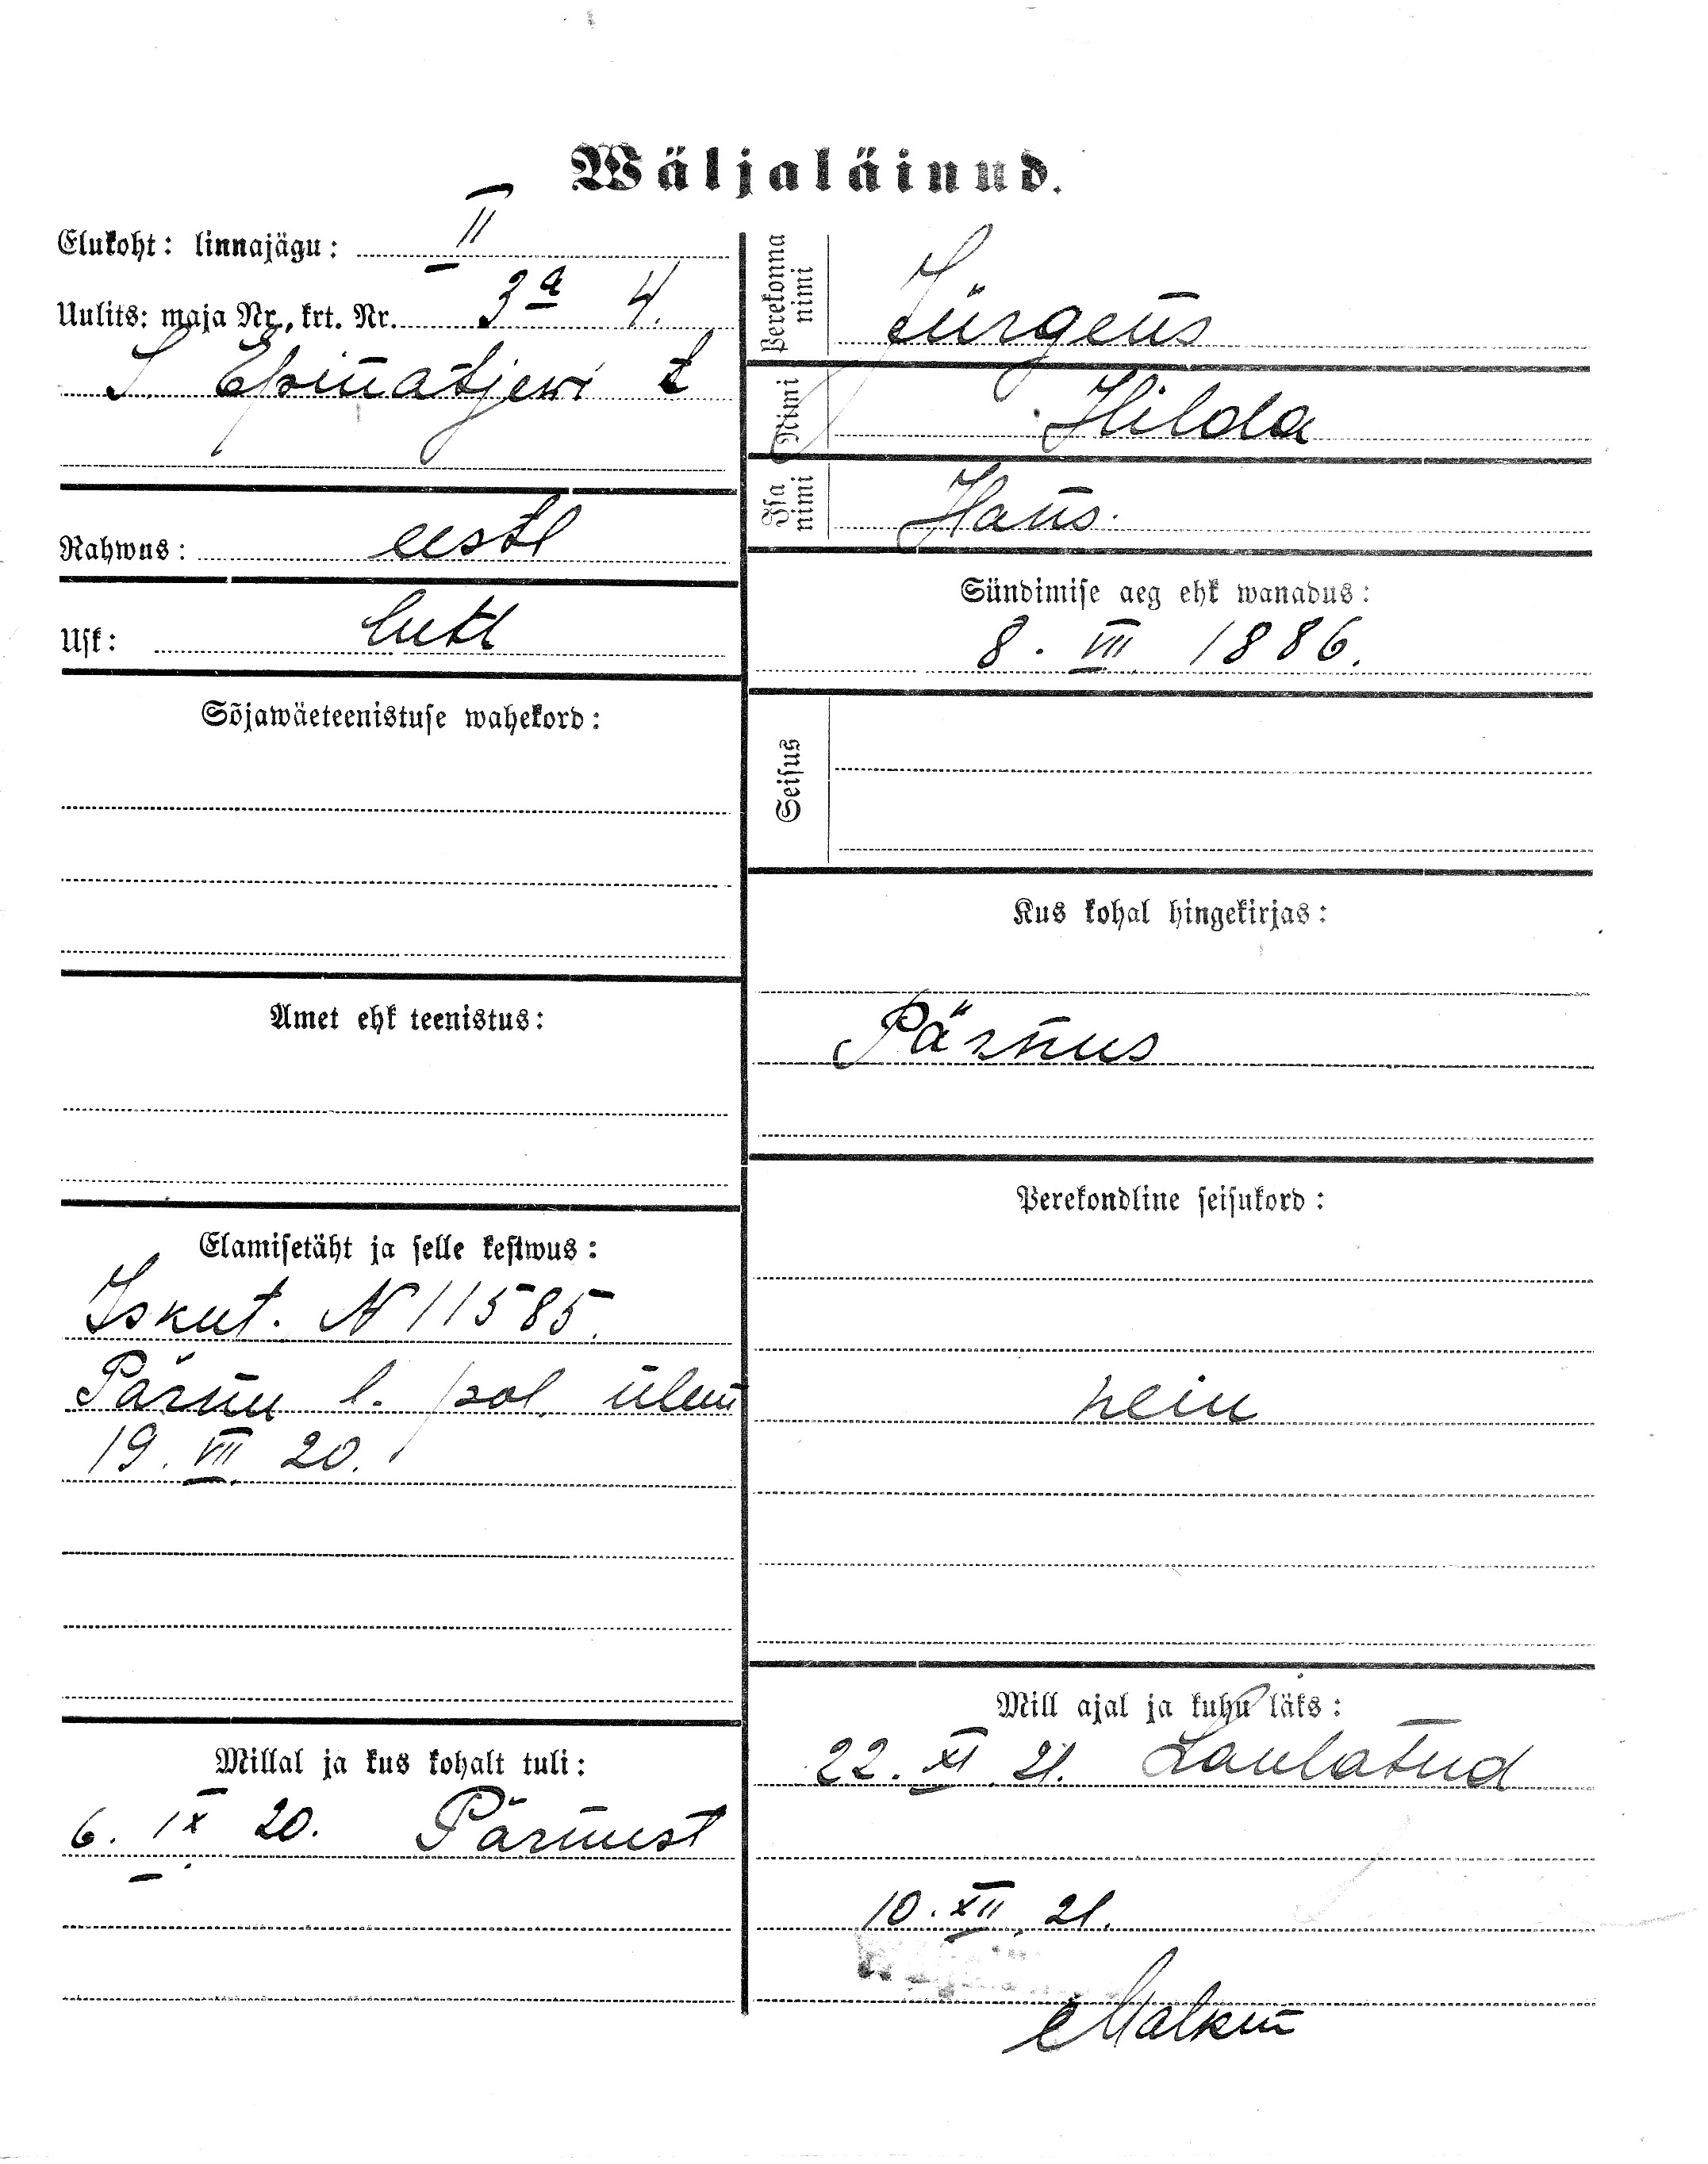 Wäljaläinud.
Elukoht: linnajägu: II
Uulits: maja Nr., krt. Nr. 3a 4.
Rahwus: eestl
Usk: lutl
Sõjawäeteenistuse wahekord:
Amet ehk teenistus:
Elamisetäht ja selle kestwus:
Iskut. N 11585.
Pärnu l. pol. ülem
19. VII 20.
Millal ja kus kohalt tuli:
6. IX 20. Pärnust
Perekonna nimi
Jürgens
Nimi
Hilda
Isa nimi
Hans.
Sündimise aeg ehk wanadus:
8. VII 1886.
Seisus
Kus kohal hingekirjas:
Pärnus
Perekondline seisukord:
nein
Mill ajal ja kuhu läks:
22. XI. 21. Laulatud
10. XII. 21.